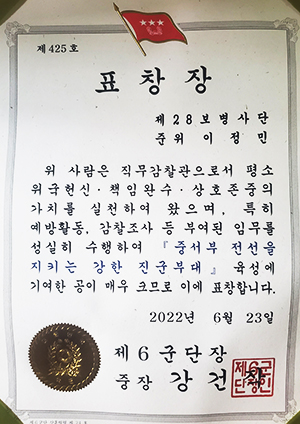 제 425 호
표 창 장
제 2 8 보 병 사 단
준 위 이 정 민
위 사람은 직무감찰관으로서 평소
위국헌신·책임완수·상호존중의
가치를 실천하여 왔으며, 특히
예방활동, 감찰조사 등 부여된 임무를
성실히 수행하여 『중서부 전선을
지키는 강한 진군부대』 육성에
기여한 공이 매우 크므로 이에 표창합니다.
2022년 6월 23일
제 6 군 단 장
중 장 강 건 작